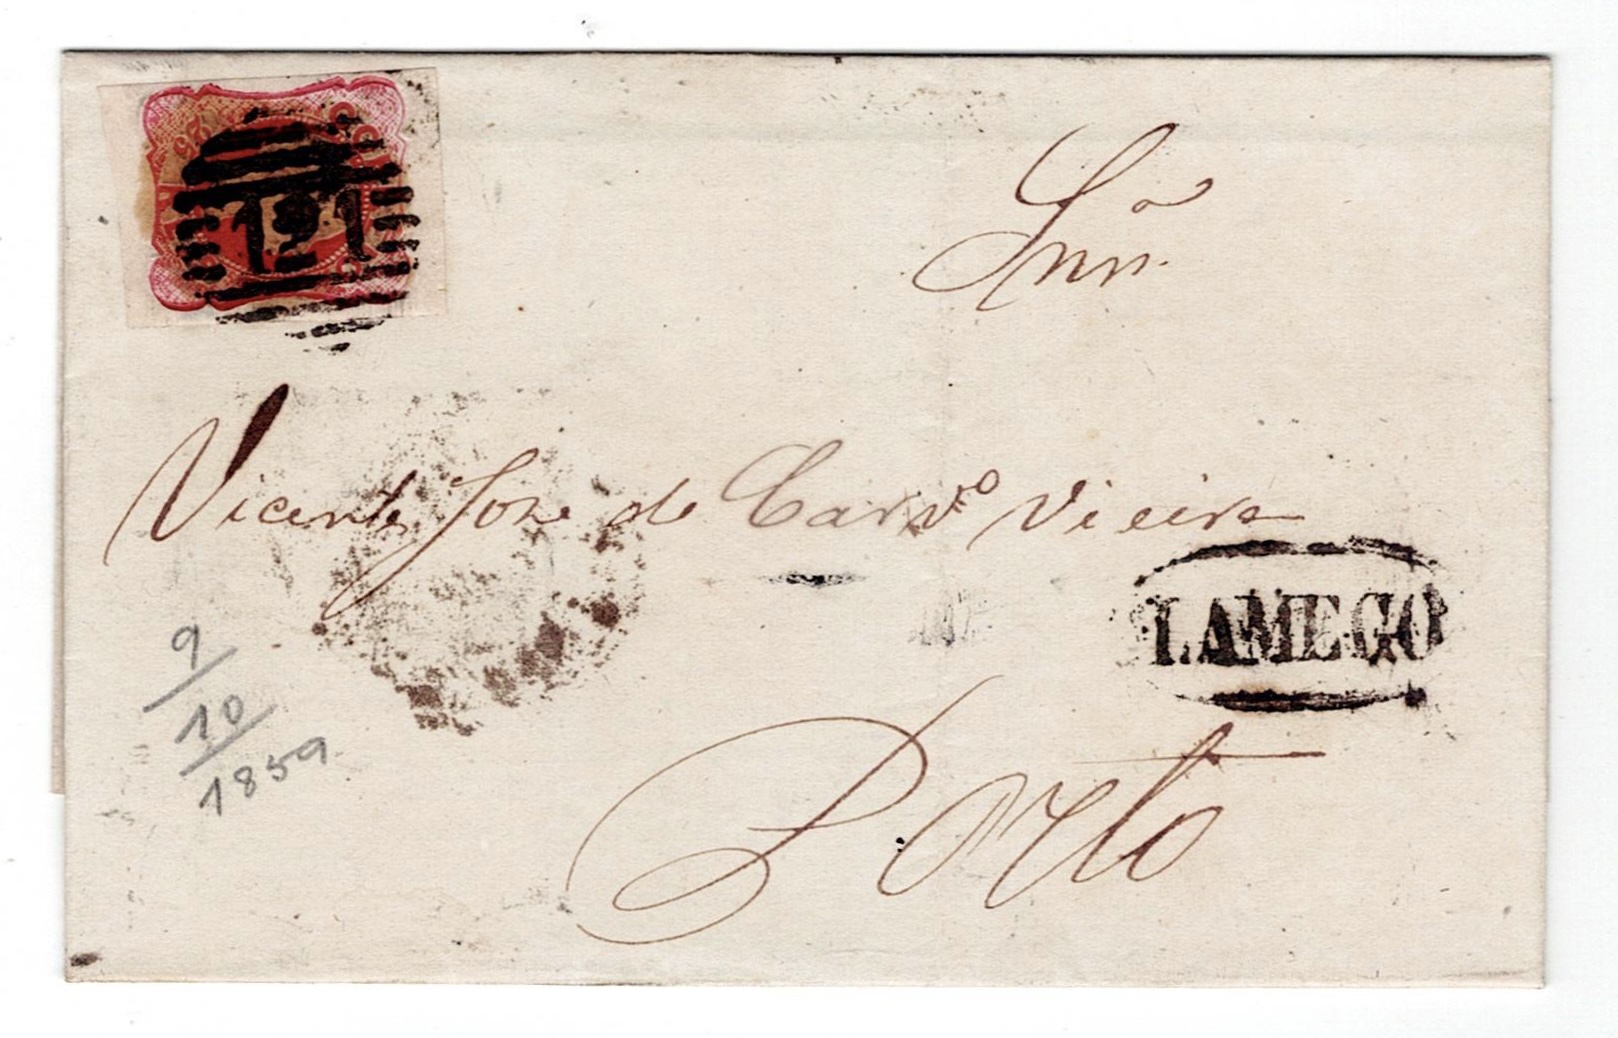 25
121
Snr.
Vicente Joze de Carvo Vieira
LAMEGO
9
10
1859
Porto